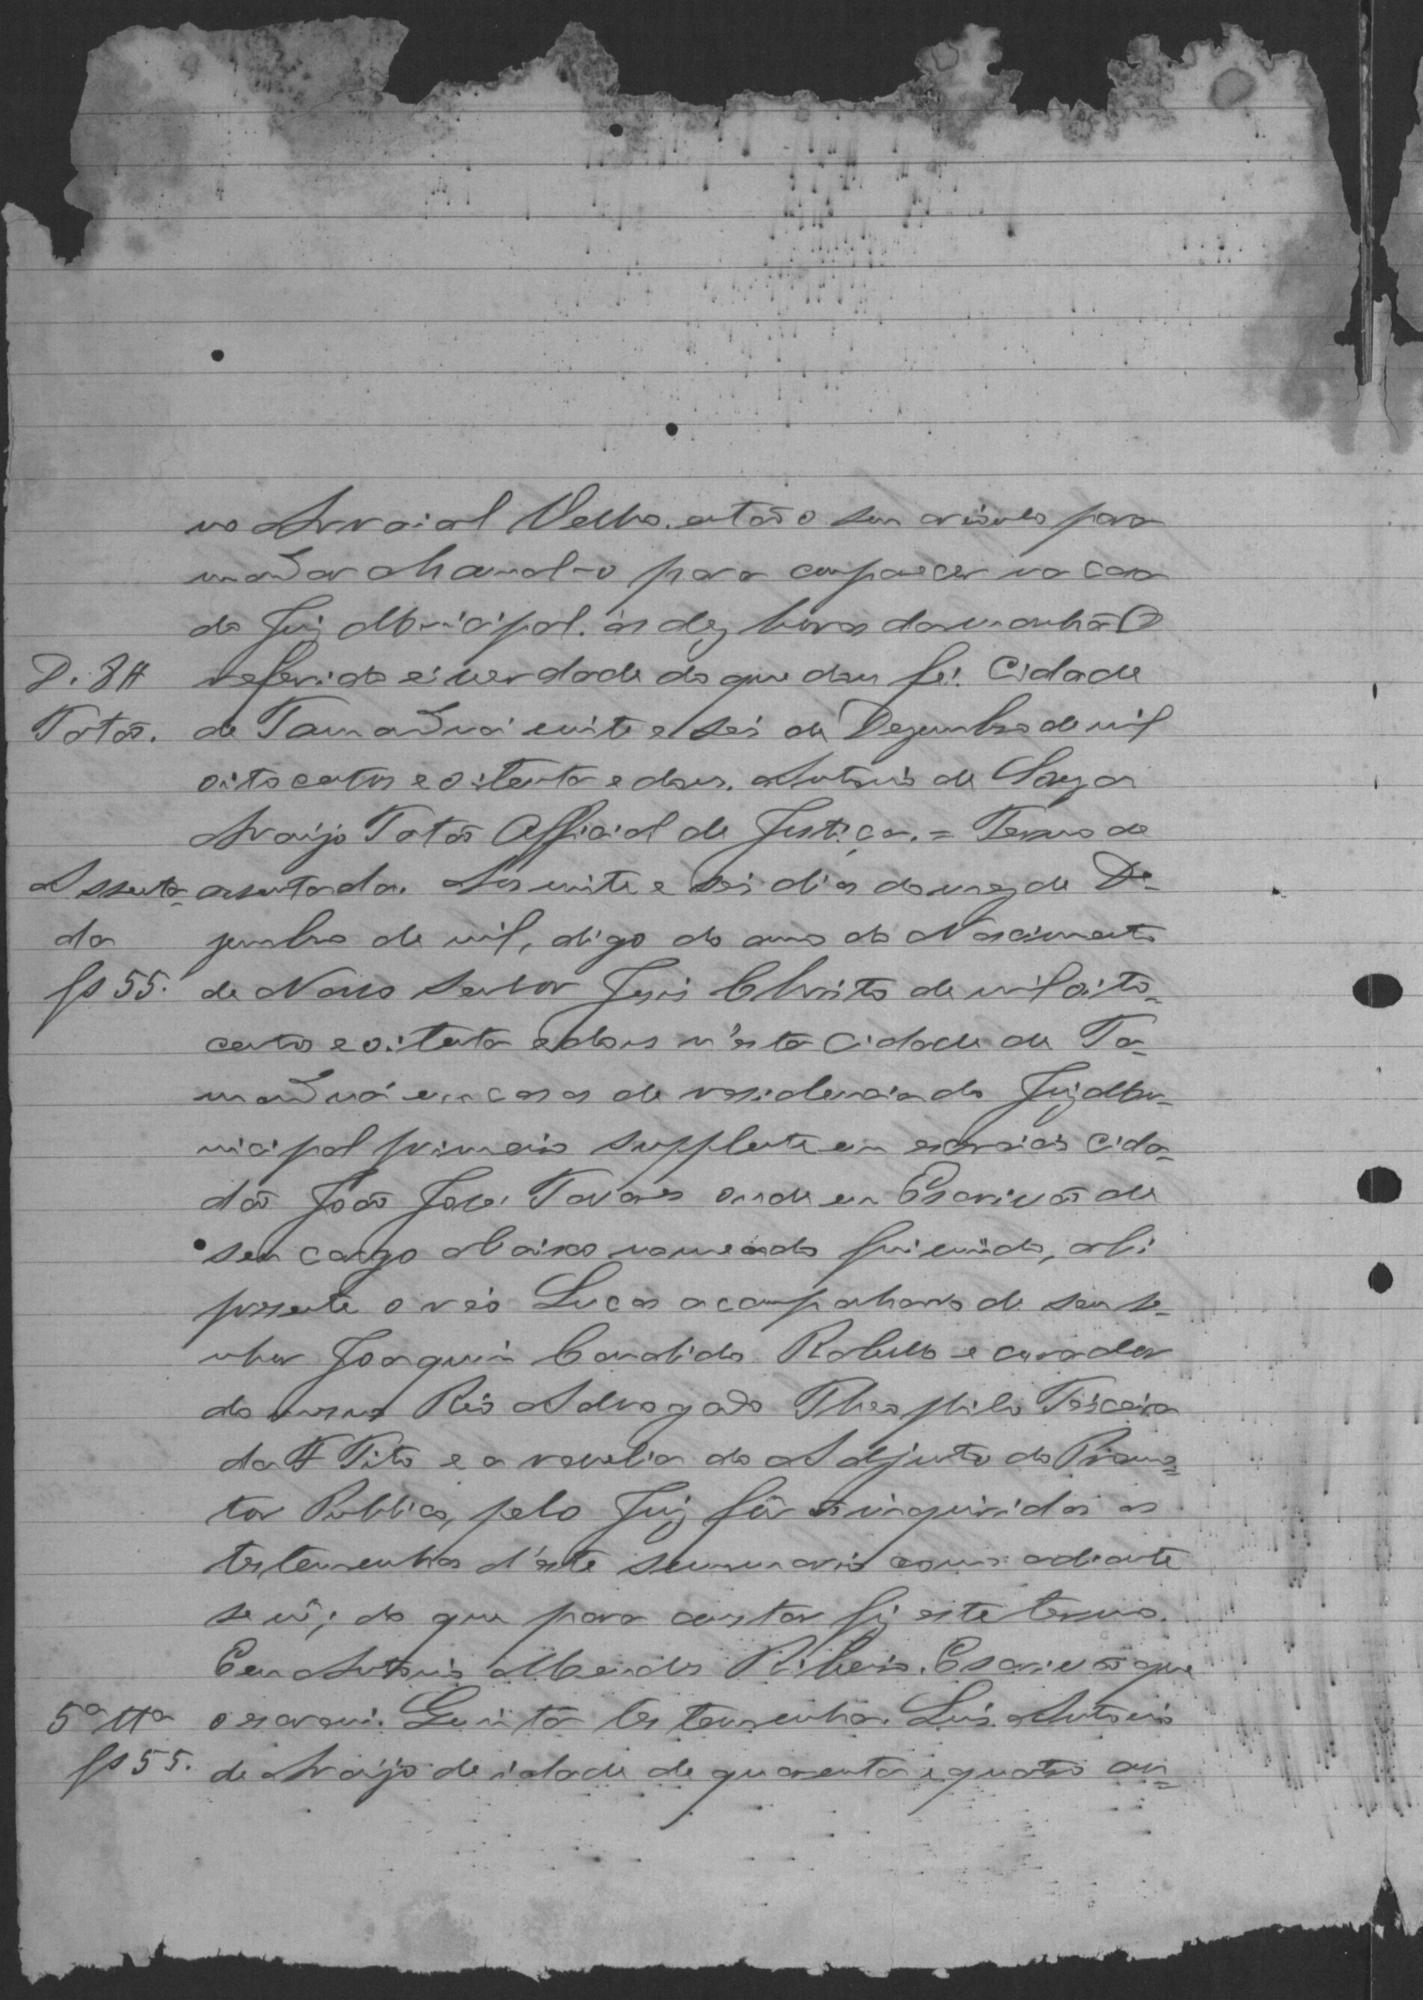 no Arraial Velho. então o seu aviso para
mandar chamal-o para comparecer na casa
do Juiz Municipal. ás dez horas da manhã O
D. 3#
referido é verdade do que dou fé. Cidade
Totão.
de Tamanduá vinte e seis de Dezembro de mil
oito centos e oitenta e dous. Antonio de Souza
Araújo Totão Official de Justiça. = Termo de
Assenta-
assentada. Aos vinte e seis dias do mez de De-
da
zembro de mil, digo do anno do Nascimento
fs 55.
de Nosso Senhor Jesus Christo de mil oito-
centos e oitenta e dous n'esta Cidade de Ta-
manduá em casa de residencia do Juiz Mu-
nicipal primeiro supplente em exercicio Cida-
dão João José Tavares onde eu Escrivão de
seu cargo abaixo nomeado fui vindo, ahi
presente o réo Lucas acompanhado de seu se-
nhor Joaquim Candido Rabello e curador
do mesmo Réo Advogado Theophilo Teixeira
da Tito e a revelia do Adjunto do Promo-
tor Publico, pelo Juiz fôr inquiridas as
testemunhas d'este summario como adiante
se vê; do que para constar fiz este termo.
Eu Antonio Mendes Ribeiro. Escrivão que
5ª tta
o escrevi. Quinta testemunha. Luis Antonio
fs 55.
de Araújo de idade de quarenta e quatro an-